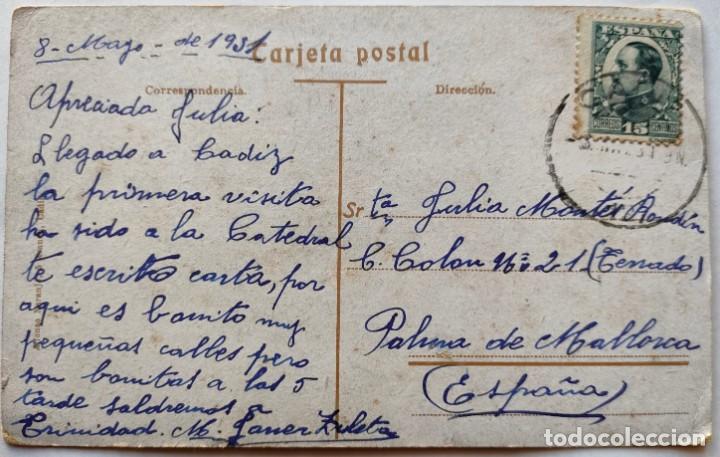 8 - Mayo - de 1931
Carjeta postal
Correspondencia.
Dirección.
Apreciada Julia:
Llegado a Cadiz
la primera visita
ha sido a la Catedral
te escrito carta, por
aqui es bonito muy
pequeñas calles pero
son bonitas a las 5
tarde saldremos a
Trinidad. M. Janer
Srta Julia Montés
C. Colon Nº 21 (Terrado)
Palma de Mallorca
(España)
ESPAÑA
CORREOS 15 CENTIMOS
todocoleccion
todocoleccion.net